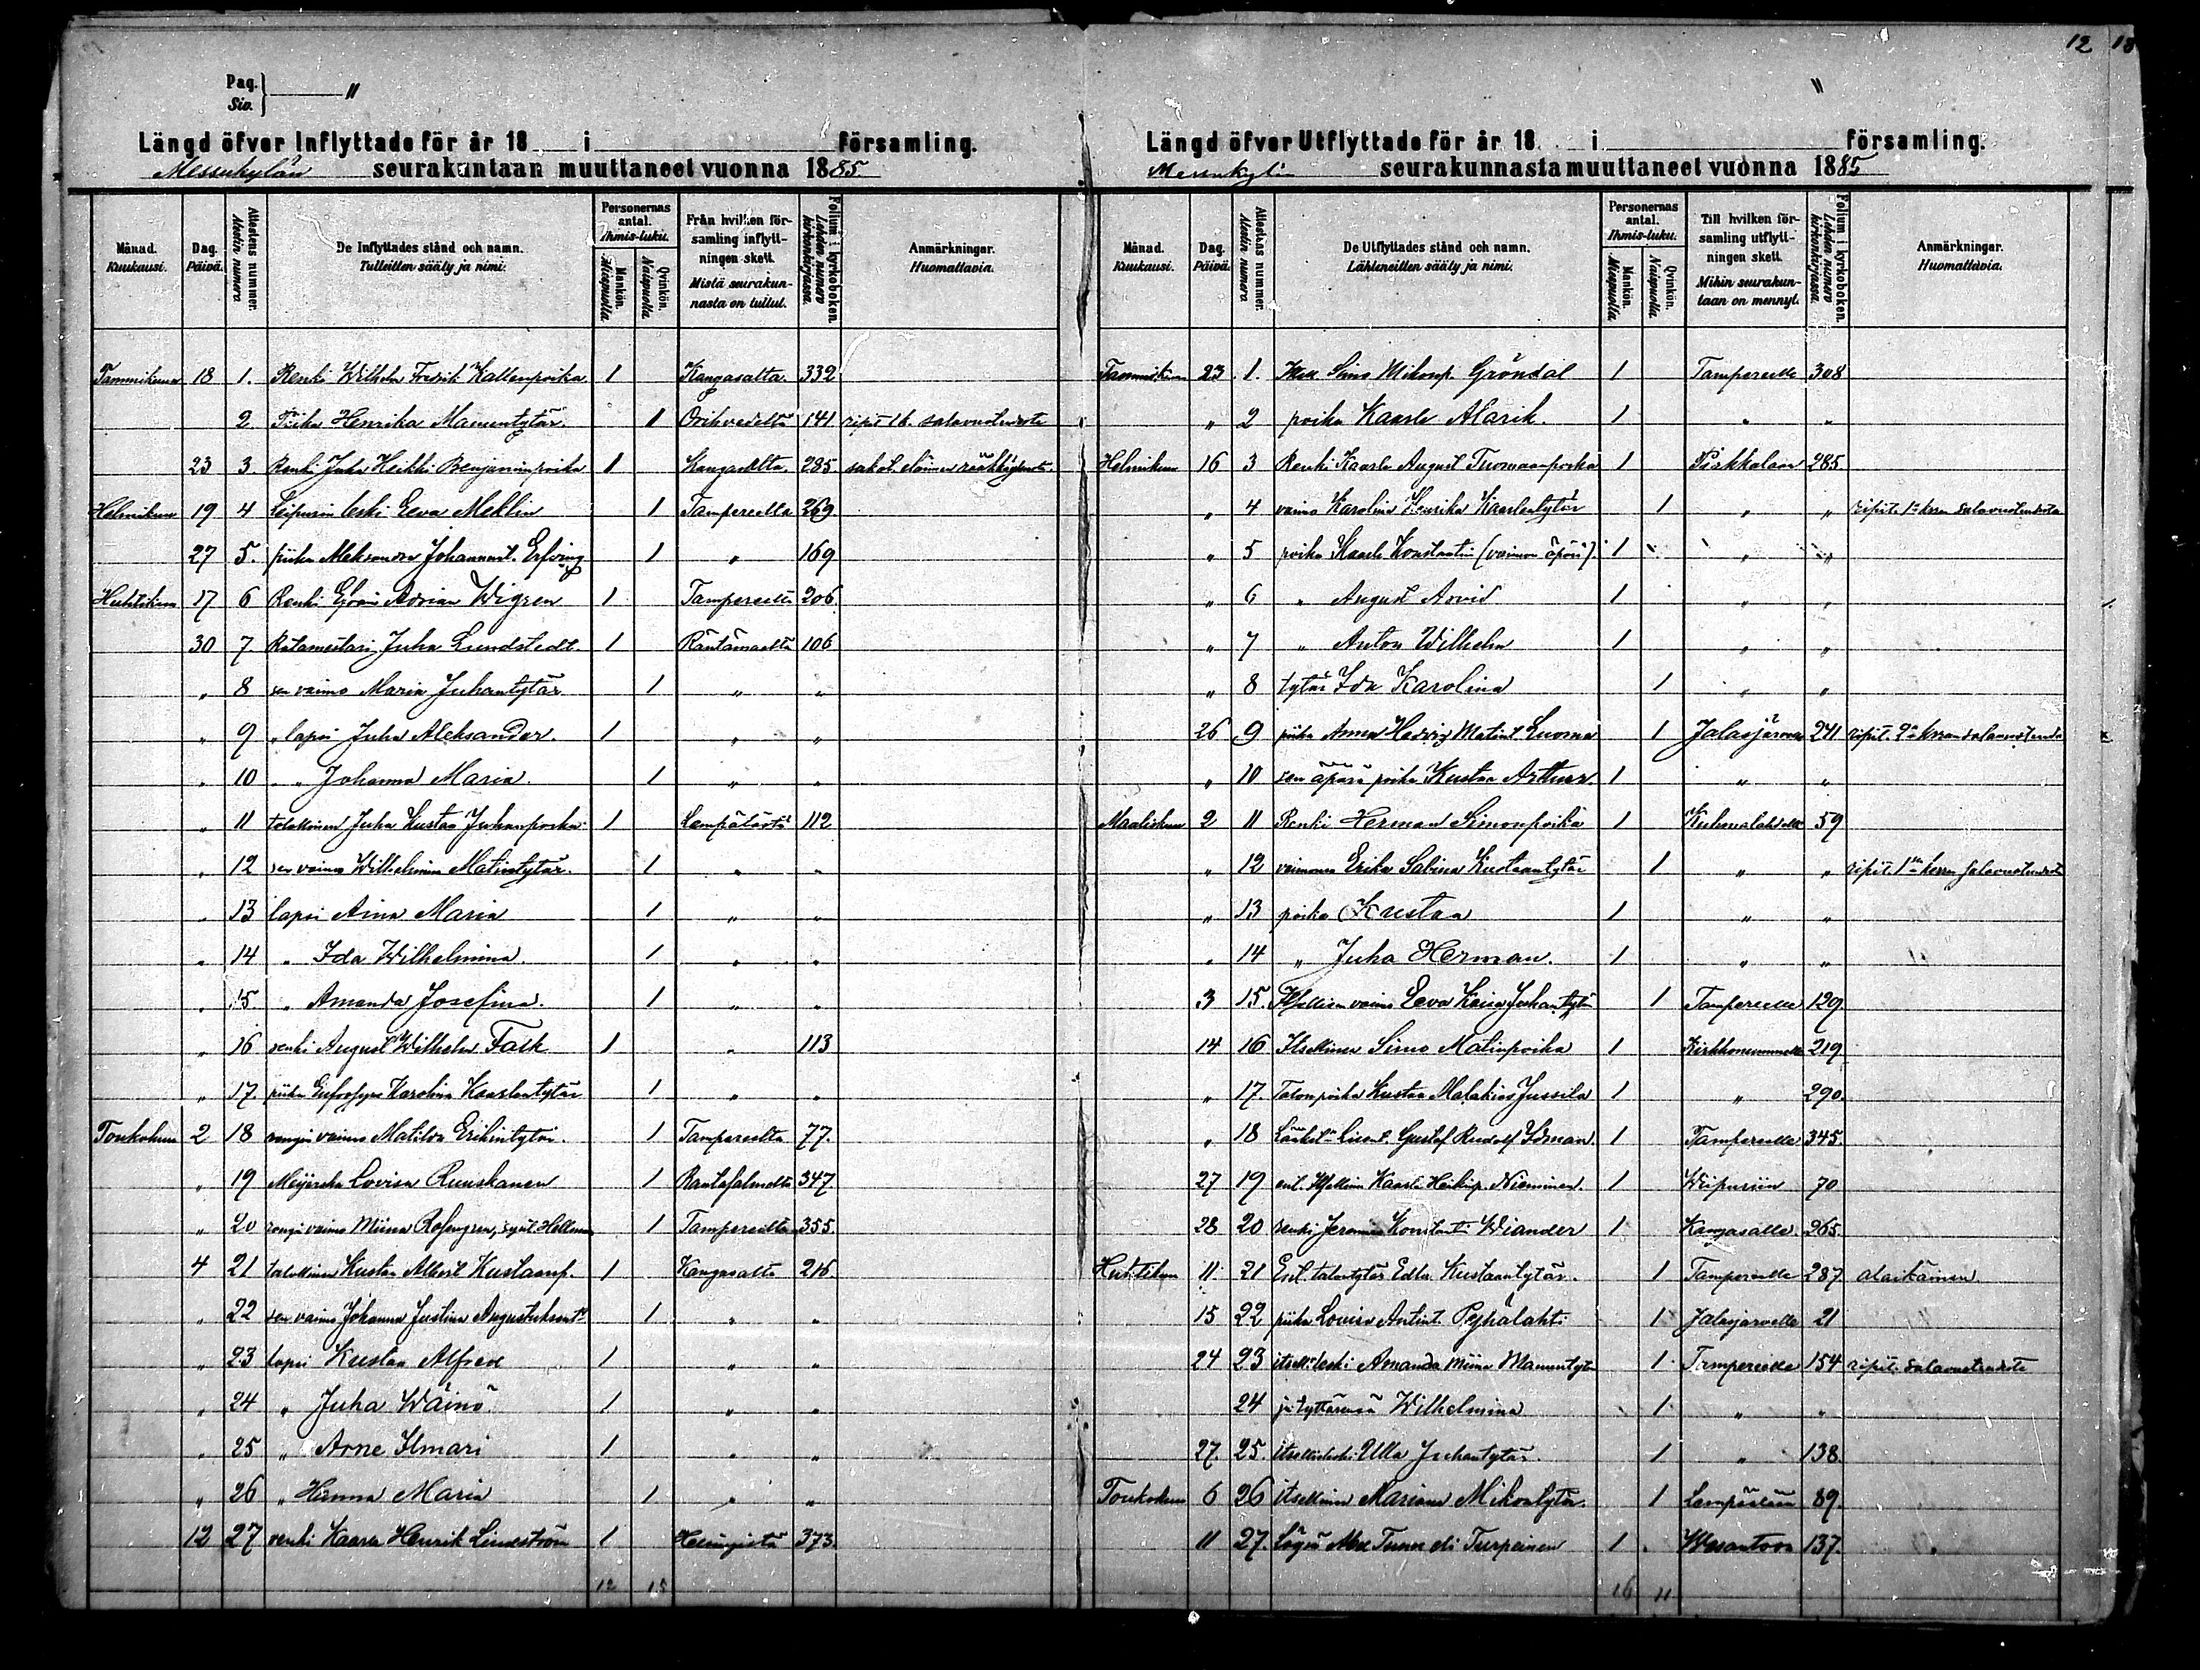 12 18
Pag. Siv. } "
Längd öfver Inflyttade för år 18 i församling.
Messukylän seurakuntaan muuttaneet vuonna 1885
Månad. Kuukausi.
Dag. Päivä.
Attestens nummer. Nestin numero
De Inflyttades stånd och namn. Tulleitten sääty ja nimi.
Personernas antal. Ihmis-luku.
Mankön. Miespuolia
Qvinkön. Naispuolia
Från hvilken församling inflyttningen skett. Mistä seurakunnasta on tullut.
Folium i kyrkoboken. Lehden numero kirkonkirjassa.
Anmärkningar. Huomattavia.
Tammikuun 18 1. Renki Wilhelm Fredrik Kallenpoika 1 Kangasalta 332
2. Piika Henrika Mamentytär 1 Orihvedeltä 141 ripit. 1 k. salavuoteudesta
23 3. Renki Juha Heikki Benjaminpoika 1 Kangasalta 285
Helmikuun 19 4 Leipurin leski Eeva Meklin 1 Tampereelta 269
27 5. piika Aleksandra Johannant. Erfving 1 " 169
Huhtikuun 17 6 Renki Adrian Wigren 1 Tampereelta 206
30 7 Ratamestari Juha Lundstedt 1 Räntämäeltä 106
" 8 sen vaimo Maria Juhantytär 1 " "
" 9 " lapsi Juha Aleksander. 1 " "
" 10 " " Johanna Maria. 1 " "
" 11 talokkinen Juha Kustaa Juhanpoika 1 Lempäälästä 112
" 12 sen vaimo Wilhelmina Matintytär. 1 " "
" 13 lapsi Aina Maria 1 " "
" 14 " Ida Wilhelmina 1 " "
" 15. " Amanda Josefina. 1 " "
" 16 renki August Wilhelm Falk 1 " 113
" 17. piika Eufrosyne Karolina Kaarlentytär 1 " "
Toukokuun 2 18 rengin vaimo Matilda Erikintytär. 1 Tampereelta 77.
" 19 Meijerska Lovisa Ruuskanen 1 Rantasalmelta 347
" 20 rengin vaimo Miina Rosengren, synt. Hellman 1 Tampereelta 355.
4 21 talokkinen Kustaa Albert Kustaanp. 1 Kangasalta 216.
" 22 sen vaimo Johanna Justina Augustuksent. 1 " "
" 23 lapsi Kustaa Alfred 1 " "
" 24 " Juha Wäinö 1 " "
" 25 " Arne Ilmari 1 " "
" 26 " Hanna Maria 1 " "
12 27 renki Kaarle Henrik Lindström 1 Helsingistä 373.
12 15
"
Längd öfver Utflyttade för år 18 i församling.
Messukylän seurakunnasta muuttaneet vuonna 1885
Månad. Kuukausi.
Dag. Päivä.
Attestens nummer. Nestin numero
De Utflyttades stånd och namn. Lähteneitten sääty ja nimi.
Personernas antal. Ihmis-luku.
Mankön. Miespuolia
Qvinkön. Naispuolia
Till hvilken församling utflyttningen skett. Mihin seurakuntaan on mennyt.
Folium i kyrkoboken. Lehden numero kirkonkirjassa.
Anmärkningar. Huomattavia.
Tammikuun 23 1. Simo Mikonp. Gröndal 1 Tampereelle 308
" 2 poika Kaarle Alarik. 1 " "
Helmikuun 16 3 Renki Kaarle August Tuomaanpoika 1 Pirkkalaan 285
" 4 vaimo Karolina Henrika Kaarlentytär 1 " " ripit. 1 kerran salavuoteudesta
" 5 poika Kaarle Konstantin (vaimon äpärä). 1 " "
" 6 " August Arvid 1 " "
" 7 " Anton Wilhelm 1 " "
" 8 tytär Ida Karolina 1 " "
26 9 piika Anna Hedvig Matint. Luoma 1 Jalasjärvelle 241 ripit. 2 kerran salavuoteudesta
" 10 sen äpärä poika Kustaa Arthur 1 " "
Maaliskuun 2 11 Renki Herman Simonpoika 1 Kuhmalahdelle 59
" 12 vaimonsa Erika Sabina Kustaantytär 1 " " ripit. 1 kerran salavuoteudesta
" 13 poika Kustaa 1 " "
" 14 " Juha Herman. 1 " "
3 15. Itsellisen vaimo Eeva Kaisa Juhantytär 1 Tampereelle 129.
14 16 Itsellinen Simo Matinpoika 1 Kirkkonummelle 219
" 17. Talonpoika Kustaa Malakias Jussila 1 " 290.
" 18 Gustaf Rudolf Idman 1 Tampereelle 345.
27 19 ent. Itsellinen Kaarle Heikinp. Nieminen. 1 Wiipuriin 70
28 20 renki Jeremias Konstantin Wiander 1 Kangasalle 265.
Huhtikuun 11 21 Ent. talontytär Edla Kustaantytär. 1 Tampereelle 287. alaikäinen
15 22 piika Lovisa Antint. Pyhälahti 1 Jalasjärvelle 21
24 23 itsell. leski Amanda Miina Mamentytär 1 Tampereelle 154 ripit. salavuoteudesta
24 ja tyttärensä Wilhelmina 1 " "
27. 25. itsellisleski Ulla Juhantytär. 1 " 138.
Toukokuun 6 26 itsellinen Mariana Mikontytär. 1 Lempäälään 89.
11 27. Tunn eli Turpeinen 1 Wesantoon 137.
16 11